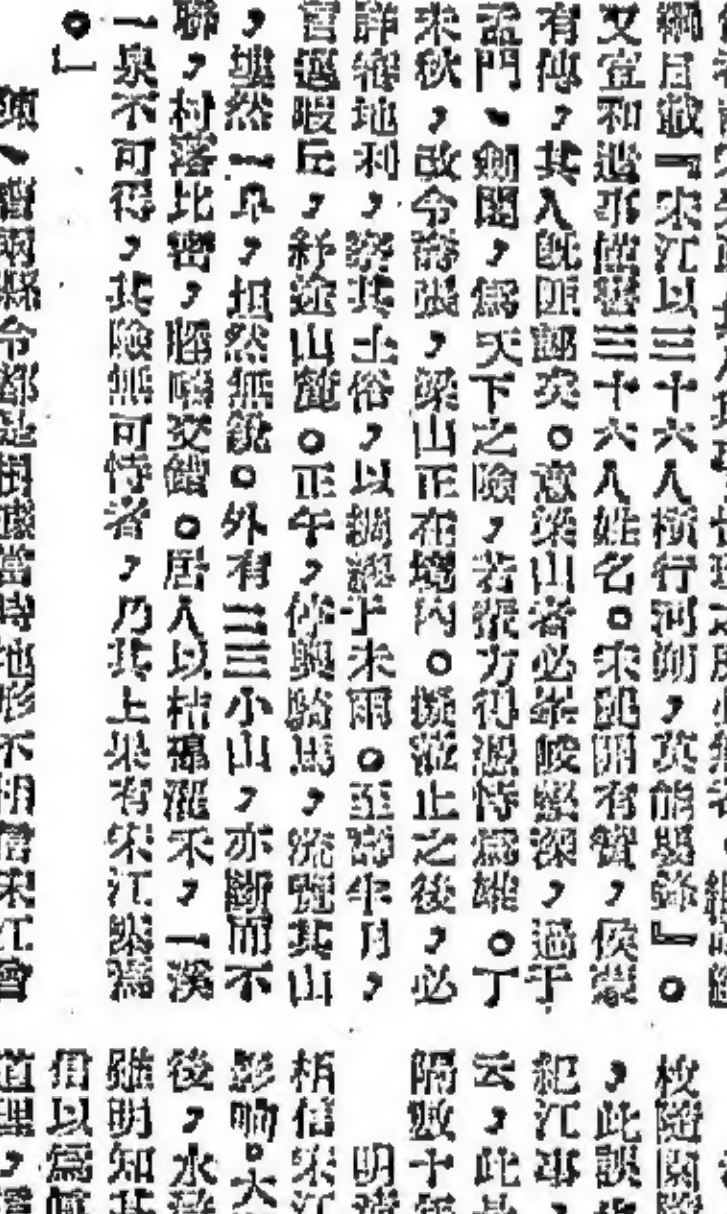 綱目載『宋江以三十六人橫行河朔，莫能嬰鋒』。
又宣和遺事備書三十六人姓名。宋龔開有贊，侯蒙
有傳，其人旣匪誣矣。意梁山者必峯峻壑深，過于
孟門、劍閣，爲天下之險，若輩方得憑恃爲雄。丁
未秋，改令壽張，梁山正在境內。擬蒞止之後，必
詳審地利，察其土俗，以綢繆于未雨。至壽半月，
言邁暖丘，紆途山麓。正午，停輿騎馬，流覽其山
，塊然一阜，坦然無銳。外有二三小山，亦斷而不
聯，村落比密，塍疇交錯。居人以桔槔灌禾，一溪
一泉不可得，其險無可恃者，乃其上果有宋江寨焉
。」
兩縣令都是根據當時地形不相信宋江曾
枚隨園隨
，此誤
紀江事，
云，此
隔數十年
明
相信宋江
影响。大
後，水滸
雖明知其
信以爲眞
道理，